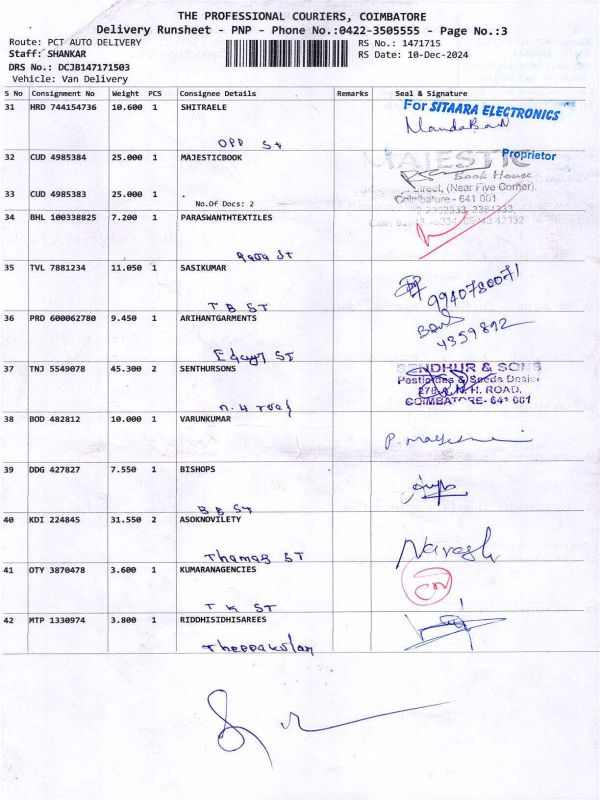 THE PROFESSIONAL COURIERS, COIMBATORE
Delivery Runsheet - PNP - Phone No.:0422-3505555 - Page No.:3
Route: PCT AUTO DELIVERY
RS No.: 1471715
Staff: SHANKAR
RS Date: 10-Dec-2024
DRS No.: DCJB147171503
Vehicle: Van Delivery
S No Consignment No Weight PCS Consignee Details Remarks Seal & Signature
31 HRD 744154736 10.600 1 SHITRAELE
For SITAARA ELECTRONICS
OPP St
Proprietor
32 CUD 4985384 25.000 1 MAJESTICBOOK
MAJESTIC
Book House
Street, (Near Five Corner),
33 CUD 4985383 25.000 1
Coimbatore - 641 001
No.Of Docs: 2
34 BHL 100338825 7.200 1 PARASWANTHTEXTILES
Raja St
35 TVL 7881234 11.050 1 SASIKUMAR
9940780071
T B ST
36 PRD 600062780 9.450 1 ARIHANTGARMENTS
4359892
Edayr ST
37 TNJ 5549078 45.300 2 SENTHURSONS
SENDHUR & SONS
Pesticides & Seeds Dealer
N.H. ROAD,
COIMBATORE - 641 001
n.H road
38 BOD 482812 10.000 1 VARUNKUMAR
39 DDG 427827 7.550 1 BISHOPS
B B St
40 KDI 224845 31.550 2 ASOKNOVILETY
Naresh
Thamas ST
41 OTY 3870478 3.600 1 KUMARANAGENCIES
T K ST
42 MTP 1330974 3.800 1 RIDDHISIDHISAREES
Theppakulam